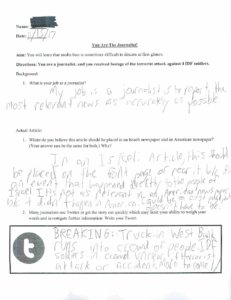 Name:
Date: /17
You Are The Journalist!
Aim: You will learn that media bias is sometimes difficult to discern at first glance.
Directions: You are a journalist, and you received footage of the terrorist attack against 4 IDF soldiers.
Background:
1. What is your job as a journalist?
My job is a journalist is to report the
most relevant news as accurately as possible
Actual Article:
1. Where do you believe this article should be placed in an Israeli newspaper and an American newspaper?
(Your answer can be the same for both.) Why?
In an Israeli Article, this should
be placed on the front page or near it b/c its
an event that happened directly to the people of
Israel. It's not as relevant in American news
b/c it didn't happen in America.
2. Many journalists use Twitter to get the story out quickly which may limit your ability to weigh your
words and to investigate further information. Write your Tweet.
BREAKING: Truck in West Bank
runs into crowd of people. IDF
soldiers in crowd
attack or accident, more to come!